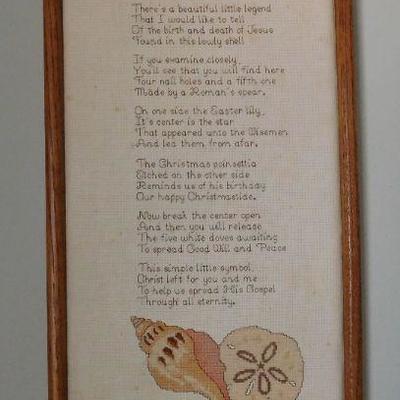 There's a beautiful little legend
That I would like to tell
Of the birth and death of Jesus
Found in this lowly shell
If you examine closely
You'll see that you will find here
Four nail holes and a fifth one
Made by a Roman's spear.
On one side the Easter lily,
It's center is the star
That appeared unto the Wisemen
And led them from afar.
The Christmas poinsettia
Etched on the other side
Reminds us of his birthday
Our happy Christmastide.
Now break the center open
And then you will release
The five white doves awaiting
To spread Good Will and Peace
This simple little symbol,
Christ left for you and me
To help us spread His Gospel
Through all eternity.